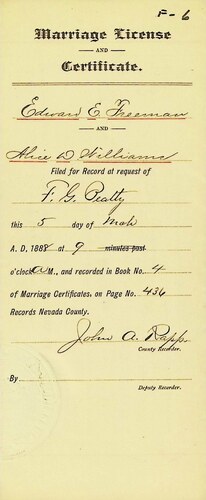 F-6
Marriage License
AND
Certificate.
Edward E. Freeman
AND
Alice D Williams
Filed for Record at request of
F. G. Beatty
this 5 day of Mch
A. D. 1888 at 9 minutes past
o'clock A M., and recorded in Book No. 4
of Marriage Certificates, on Page No. 436
Records Nevada County.
John A. Rapp
County Recorder.
By
Deputy Recorder.